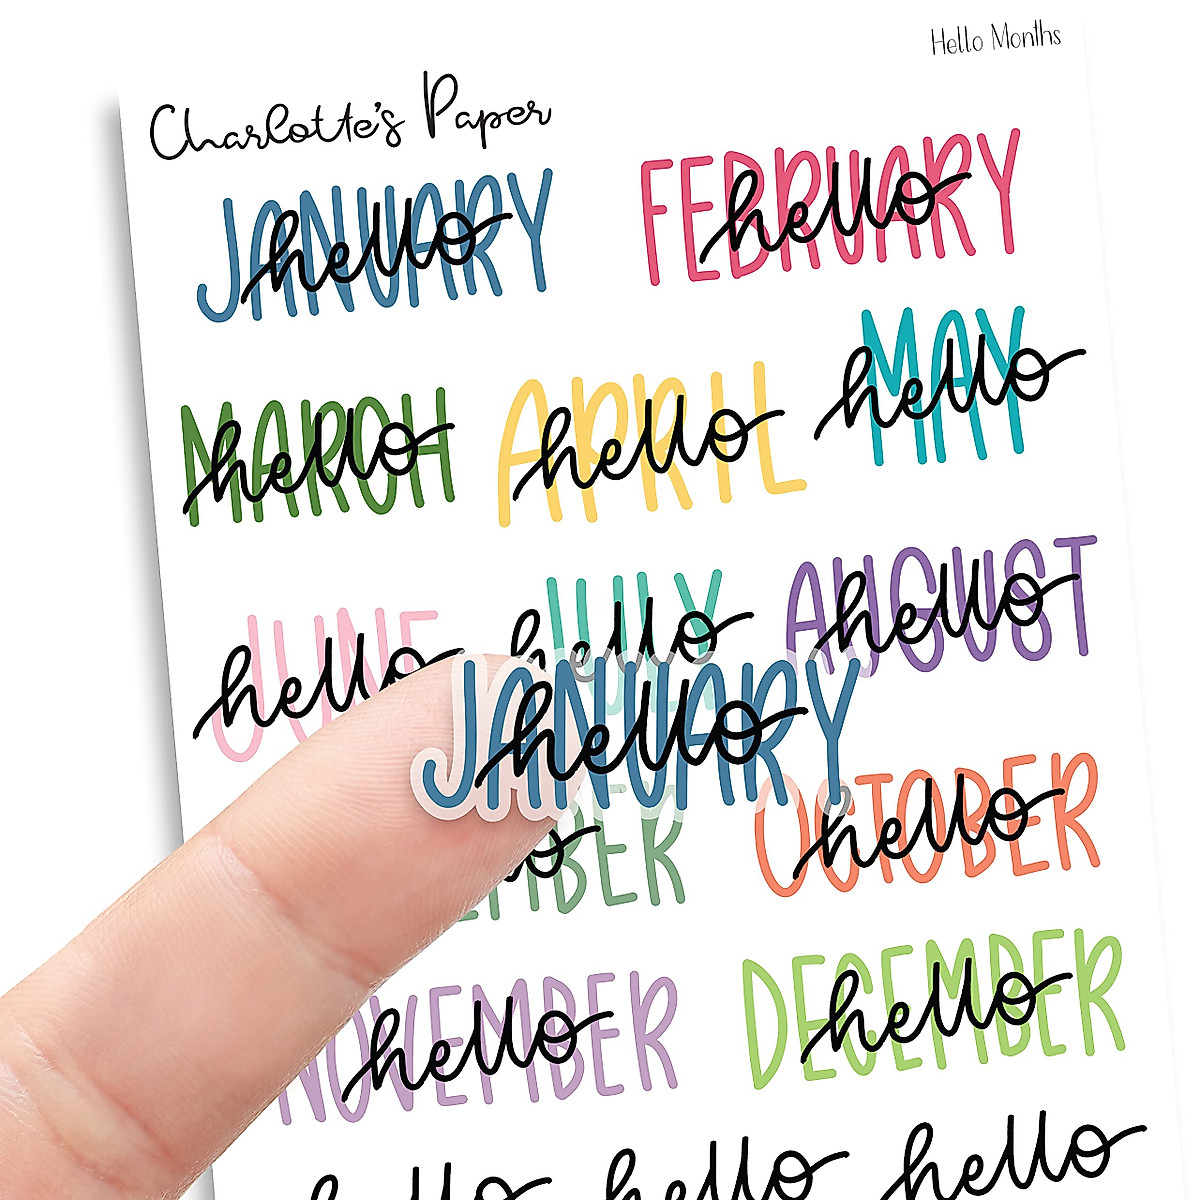 Hello Months
Charlotte's Paper
JANUARY hello
FEBRUARY hello
MARCH hello
APRIL hello
MAY hello
JUNE hello
JULY hello
AUGUST hello
JANUARY hello
OCTOBER hello
NOVEMBER hello
DECEMBER hello
hello hello hello